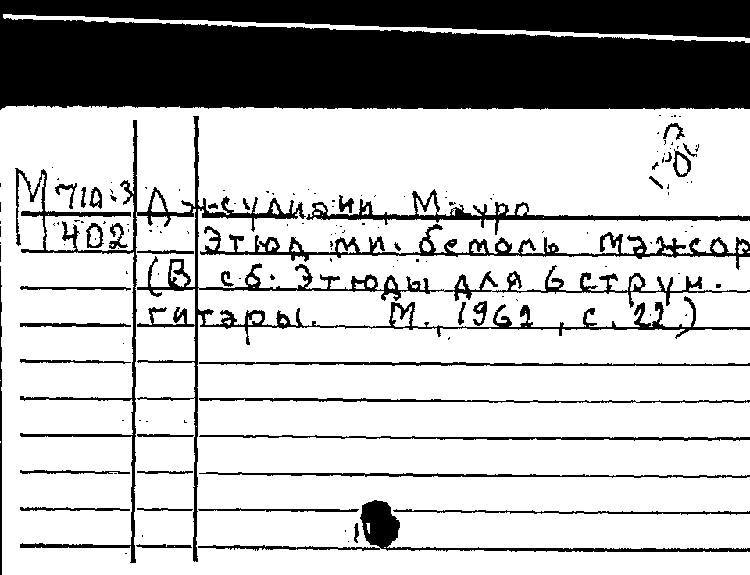 М 710.3 Джулиани, Мауро
402 Этюд ми. бемоль мажор
(В сб: Этюды для 6 струн.
гитары. М., 1961, с. 22.)